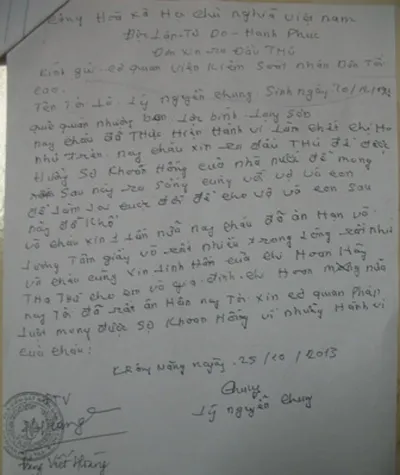 Cộng Hoà xã Hội chủ nghĩa việt nam
Độc Lập-Tự Do-Hạnh Phúc
Đơn xin ra Đầu Thú
Kính gửi cơ quan viện Kiểm Soát nhân Dân Tối
cao.
Tên Tôi Là. Lý nguyễn chung. Sinh ngày
quê quán Lạng Sơn
nay cháu đã Thực Hiện Hành vi Làm chết chị Ho
như Trên. nay cháu xin ra đầu Thú để được
Hưởng Sự Khoan Hồng của nhà nước để mong
Sau này ra Sống cùng với vợ và con
để Làm Lại cuộc đời để cho vợ và con Sau
này đỡ Khổ
và cháu xin 1 Lần nữa nay cháu đã ân Hận và
Lương Tâm giấy vò rất nhiều trong Lòng rất như
và cháu cũng xin Linh Hồn của chị Hoan Hãy
Tha Thứ cho em và gia đình. chị Hoan
nay Tôi đã rất ân Hận nay Tôi xin cơ quan pháp
Luật mong được Sự Khoan Hồng vì những Hành vi
của cháu:
KRông Năng ngày. 25/10/2013
ĐTV
Chung
Lý nguyễn chung